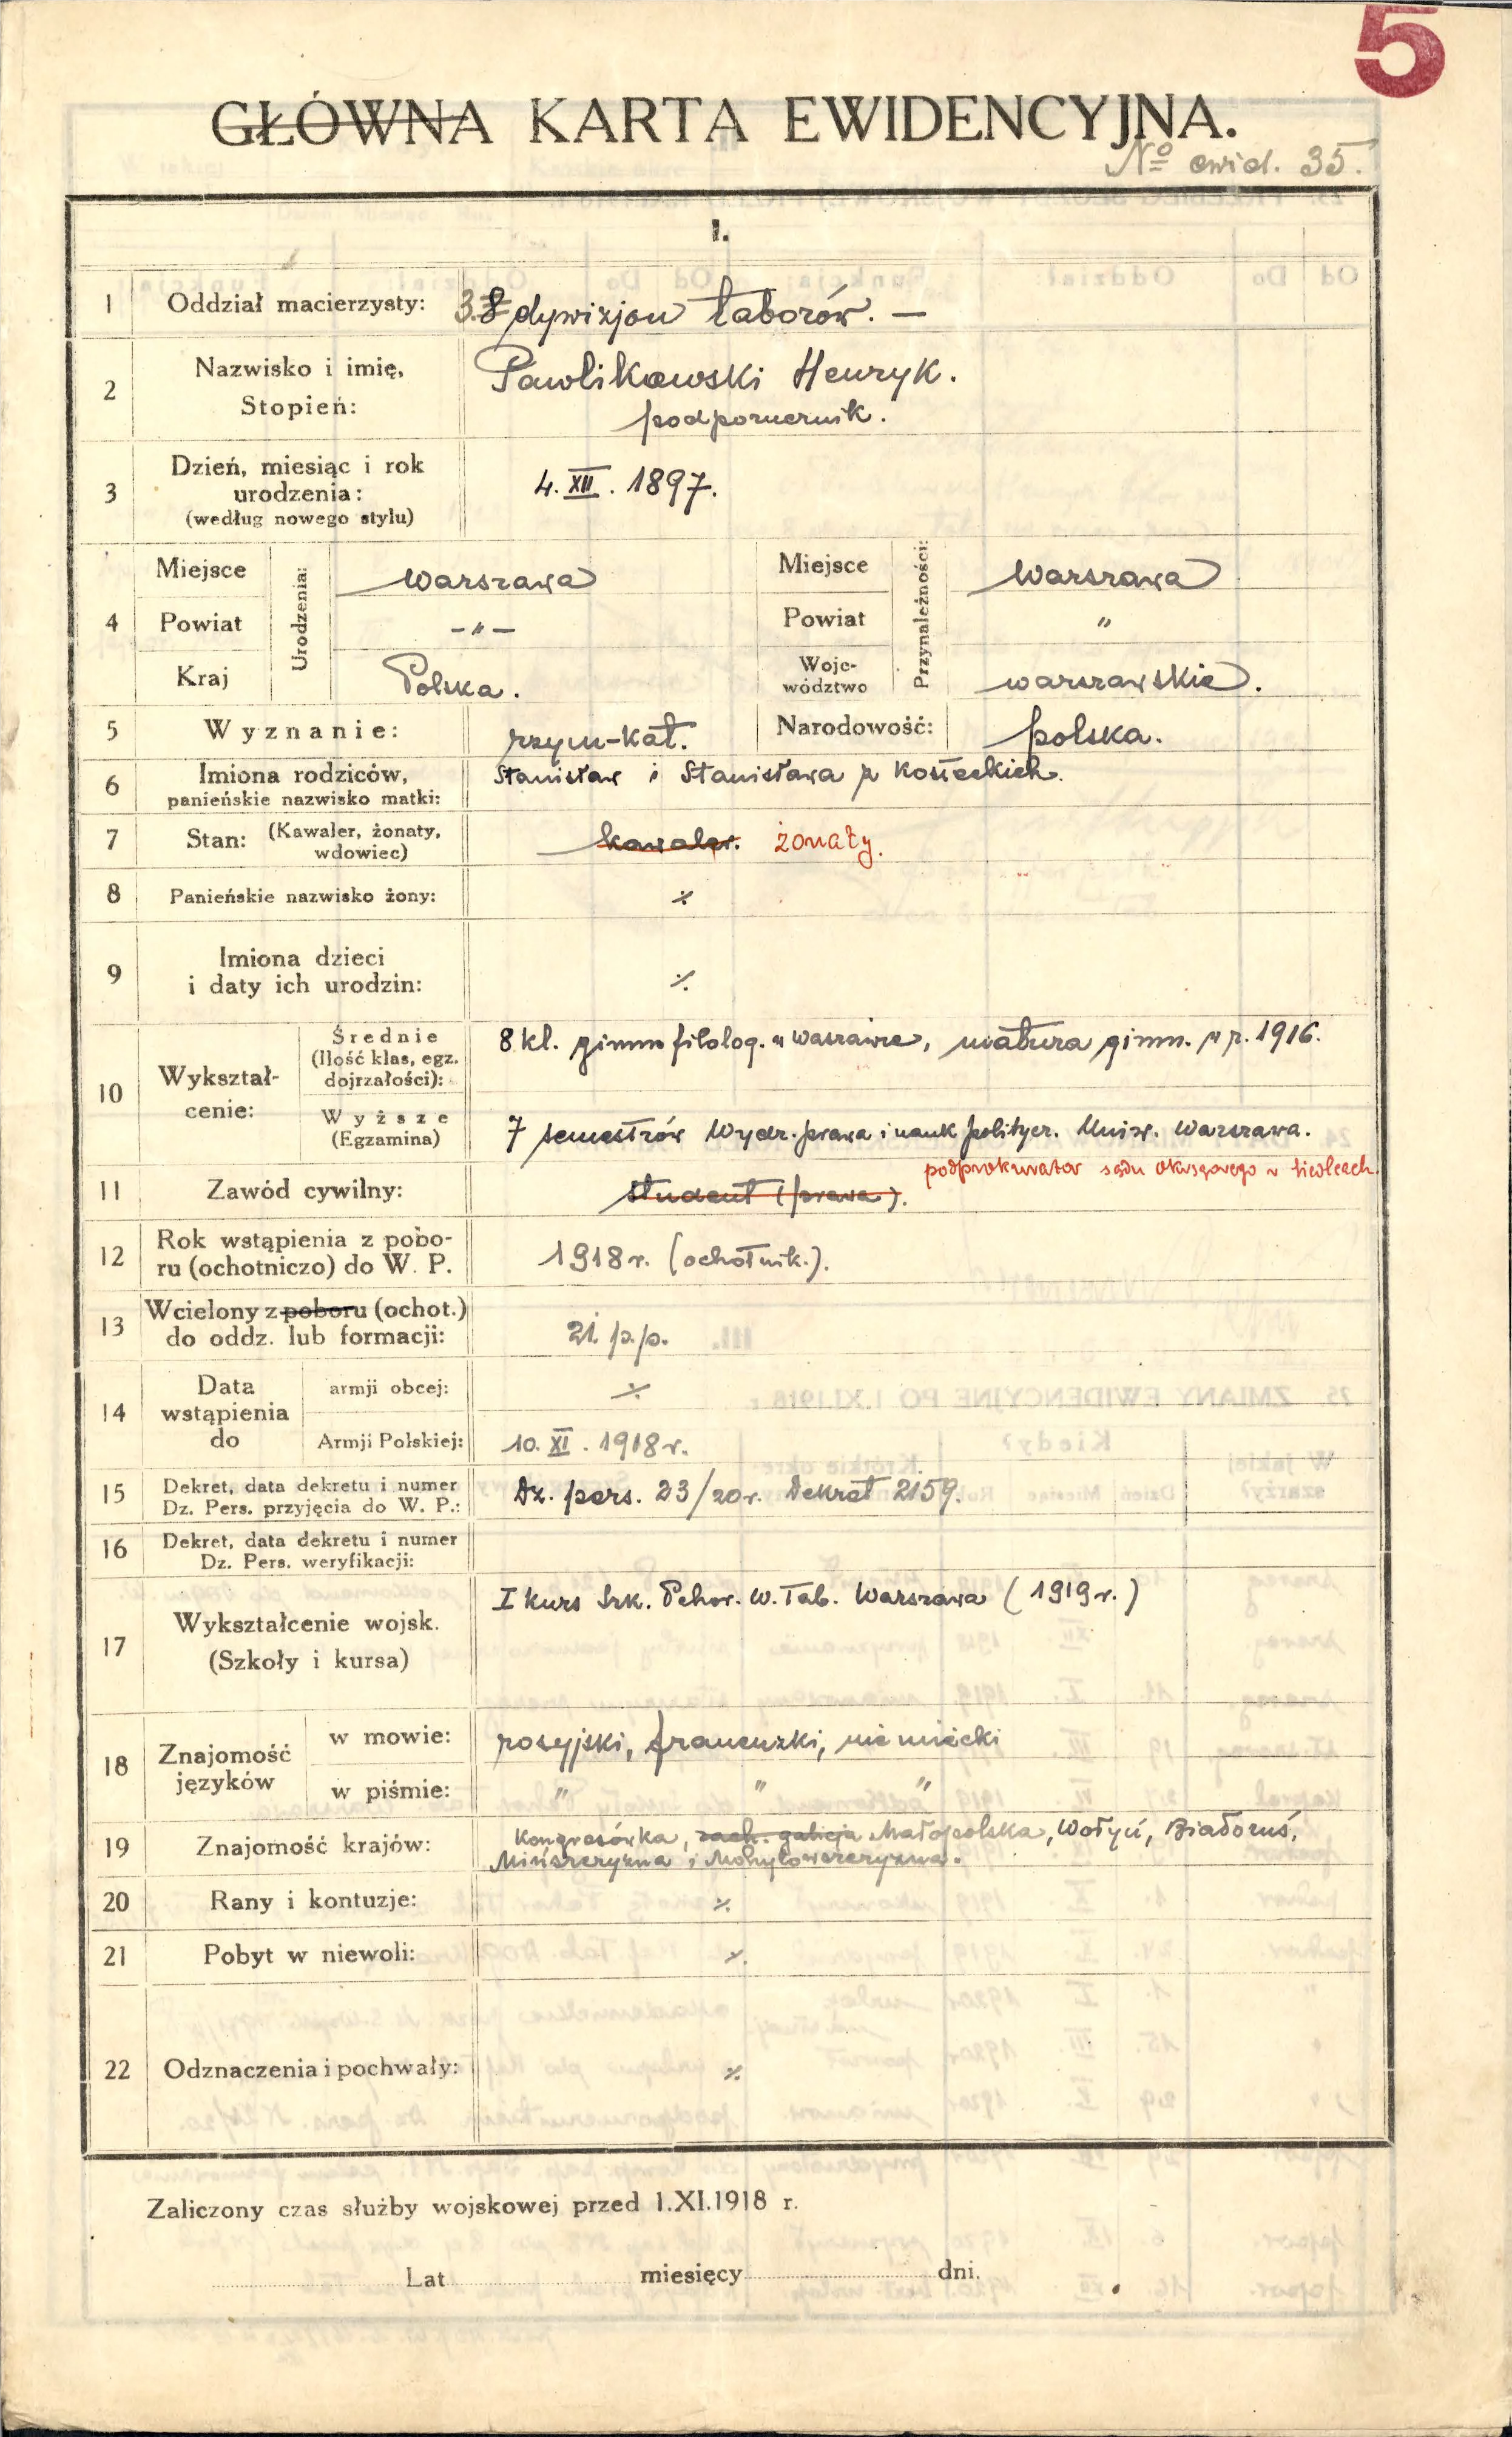 5
GŁÓWNA KARTA EWIDENCYJNA.
Nº ewid. 35.
I.
1 Oddział macierzysty: 3. 8 dywizjon taborów. —
2 Nazwisko i imię, Pawlikowski Henryk.
Stopień: podporucznik.
3 Dzień, miesiąc i rok urodzenia: (według nowego stylu) 4. XII. 1897.
4 Urodzenia: Przynależności:
Miejsce Warszawa Miejsce Warszawa
Powiat -〃- Powiat 〃
Kraj Polska. Województwo warszawskie.
5 Wyznanie: rzym-kat. Narodowość: polska.
6 Imiona rodziców, Stanisław i Stanisława z Kosieckich.
panieńskie nazwisko matki:
7 Stan: (Kawaler, żonaty, wdowiec) kawaler. żonaty.
8 Panieńskie nazwisko żony: ⁒
9 Imiona dzieci
i daty ich urodzin: ⁒
10 Wykształcenie:
Średnie (Ilość klas, egz. dojrzałości): 8 kl. gimn filolog. w Warszawie, matura gimn. w r. 1916.
Wyższe (Egzamina) 7 semestrów Wydz. prawa i nauk politycz. Uniw. Warszawa.
podprokurator sądu okręgowego w Siedlcach
11 Zawód cywilny: student (prawa).
12 Rok wstąpienia z poboru (ochotniczo) do W. P. 1918 r. (ochotnik.).
13 Wcielony z poboru (ochot.)
do oddz. lub formacji: 21. p.p.
14 Data wstąpienia do
armji obcej: ⁒
Armji Polskiej: 10. XI. 1918 r.
15 Dekret, data dekretu i numer
Dz. Pers. przyjęcia do W. P.: Dz. pers. 23/20 r. Dekret 2159.
16 Dekret, data dekretu i numer
Dz. Pers. weryfikacji:
17 Wykształcenie wojsk. I kurs Szk. Pchor. W. Tab. Warszawa (1919 r.)
(Szkoły i kursa)
18 Znajomość języków
w mowie: rosyjski, francuzki, niemiecki
w piśmie: 〃 〃 〃
19 Znajomość krajów: Kongresówka, zach. galicja Małopolska, Wołyń, Białoruś,
Mińszczyzna i Mohylowszczyzna.
20 Rany i kontuzje: ⁒
21 Pobyt w niewoli: ⁒
22 Odznaczenia i pochwały: ⁒
Zaliczony czas służby wojskowej przed 1.XI.1918 r.
Lat miesięcy dni.